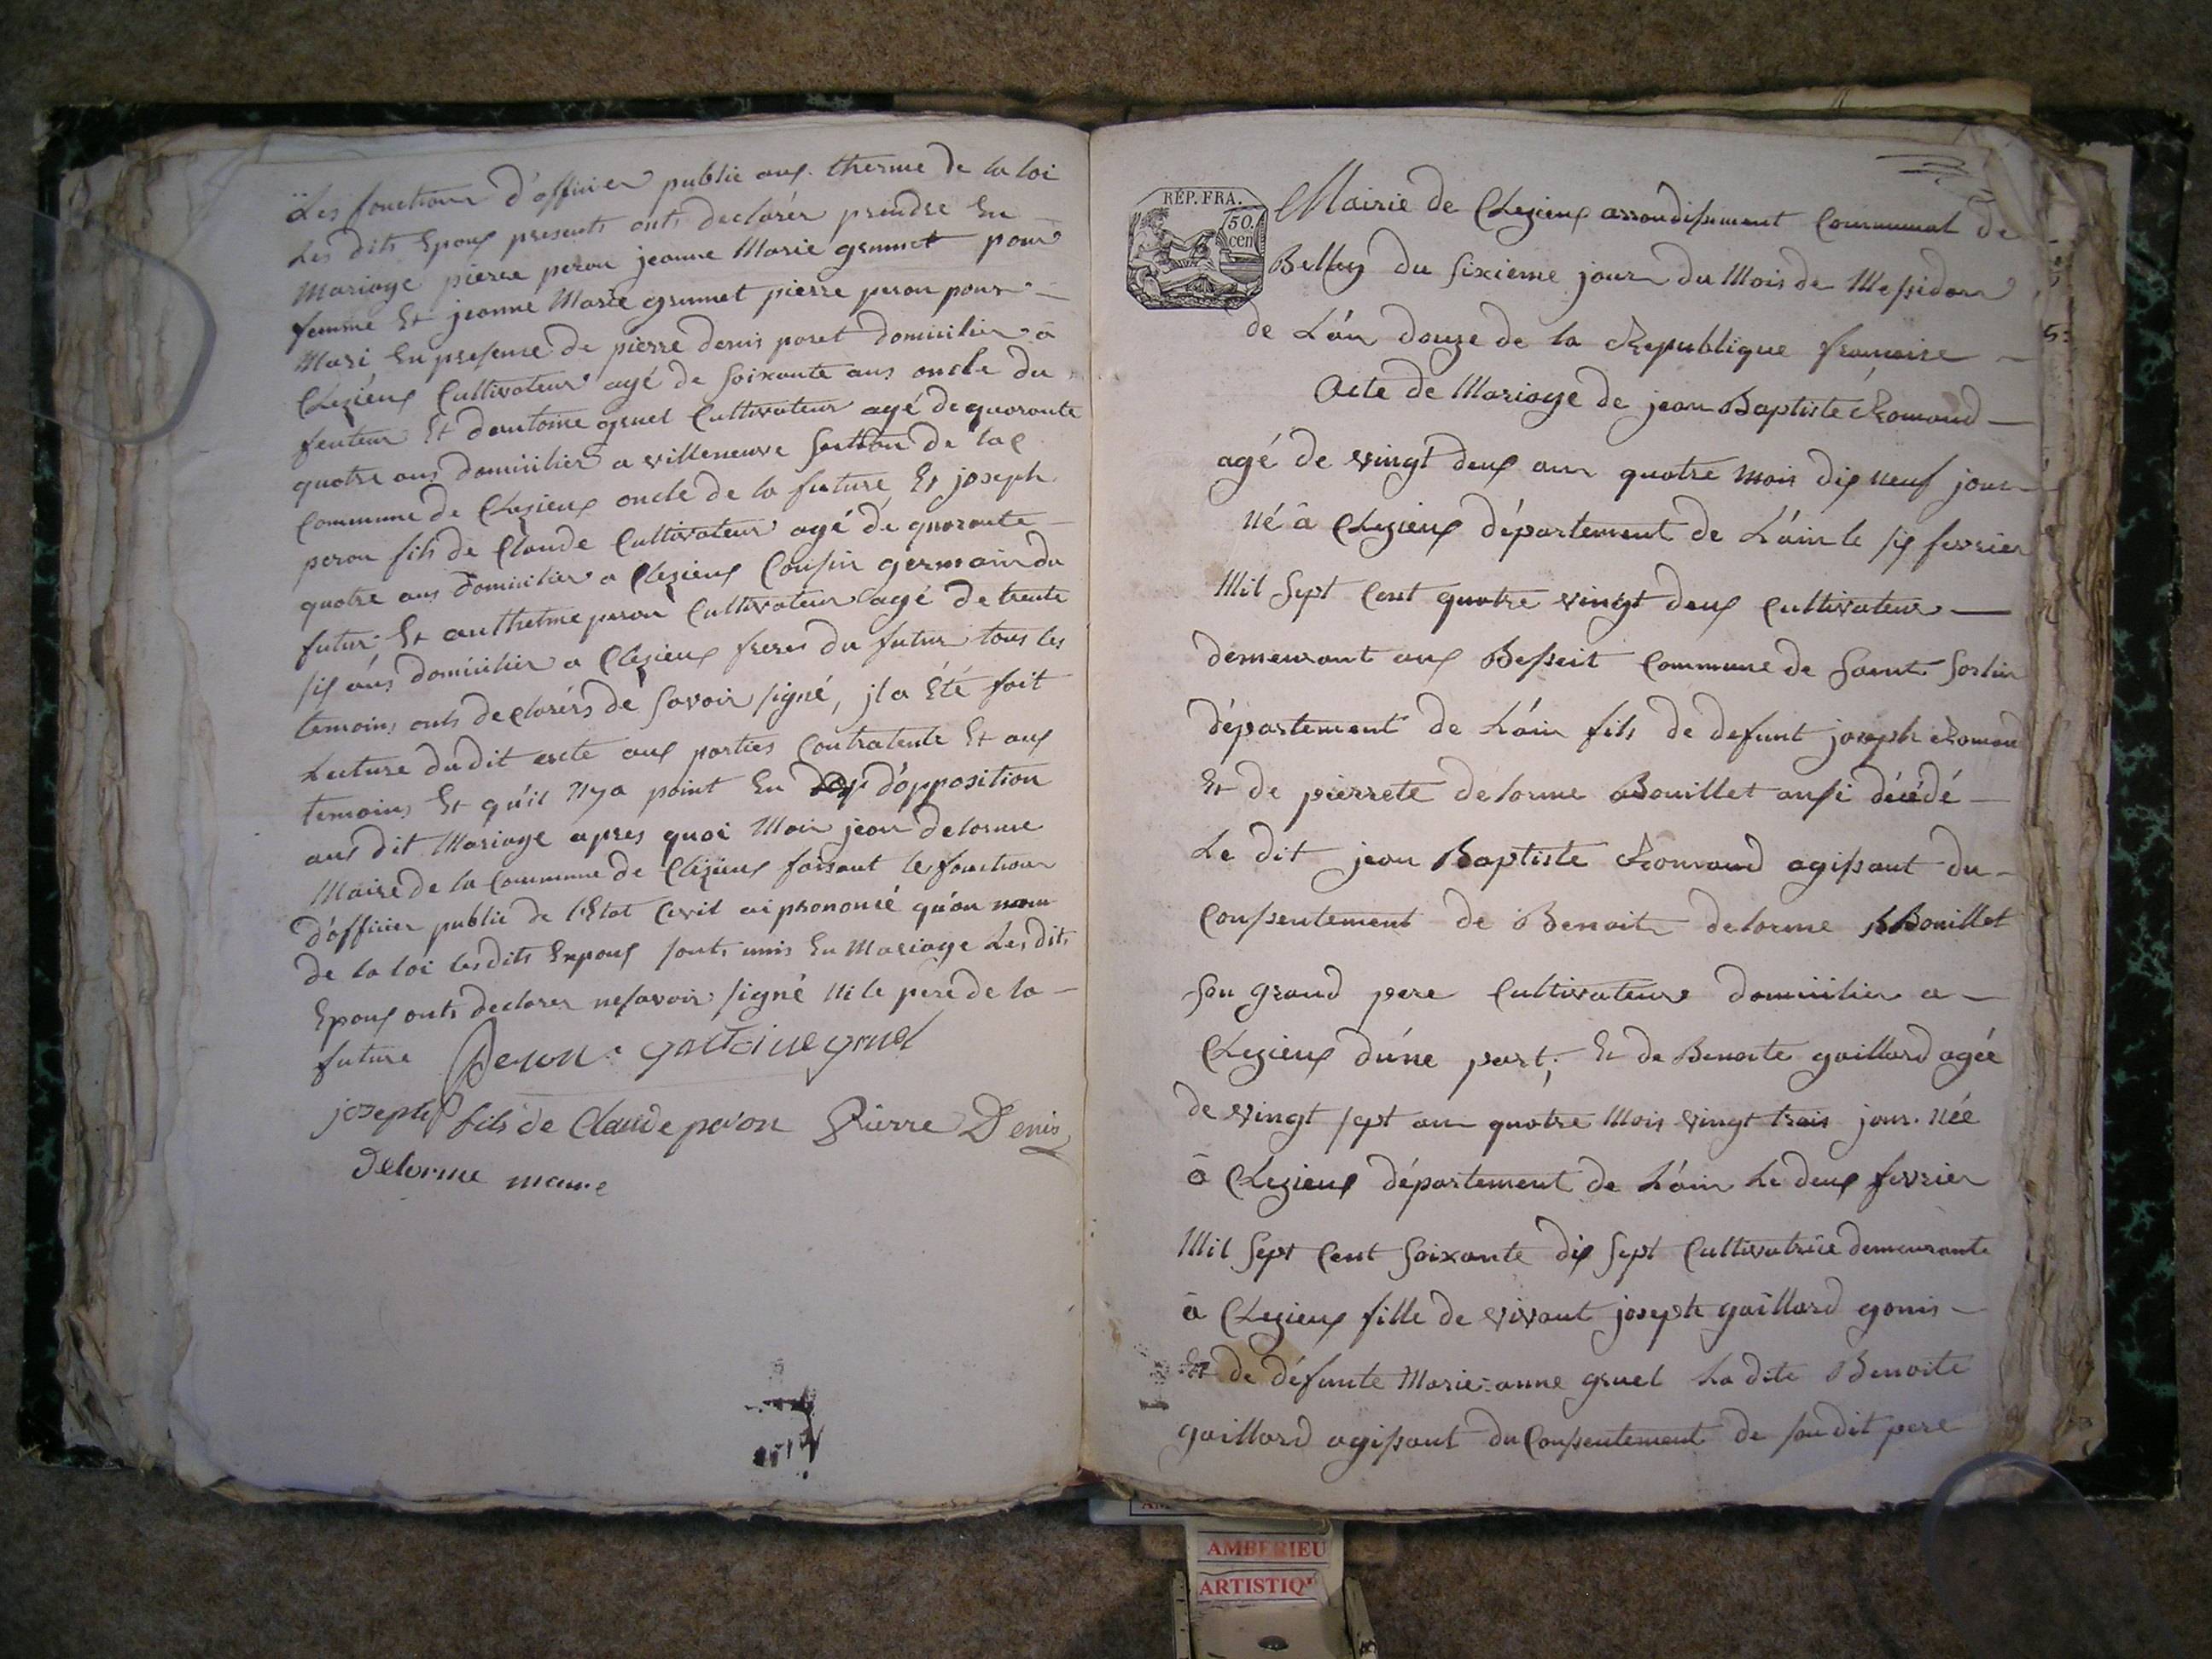 Les fonctions d'officier public aux therme de la loi
Les dits Epoux presents onts declarér prendre En
Mariage pierre peron jeanne Marie grumet pour
femme Et jeanne Marie grumet pierre peron pour
Mari En presense de pierre denis poret domicilier a
Clezieux Cultivateur agé de soixante ans oncle du
futeur Et dantoine gruel Cultivateur agé de quarante
quatre ans domicilier a villeneuve section de la
Commune de Clezieux oncle de la future Et joseph
peron fils de Claude Cultivateur agé de quarante
quatre ans domicilier a Clezieux Cousin germain du
futur Et anthelme peron Cultivateur agé de trente
six ans domicilier a Clezieux freres du futur tous les
temoins onts declarérs de savoir signé, jl a Eté fait
Lecture du dit acte aux parties Contratente Et aux
temoins Et qu'il N'y a point Eu d'opposition
aus dit Mariage apres quoi Moi jean delorme
Maire de la Commune de Clezieux faisant le fonction
d'officier public de l'Etat Civil ai prononcé qu'au nom
de la loi les dits Expoux sonts unis En Mariage Les dits
Epoux onts declarer ne savoir signé Ni le pere de la
future Peron antoine gruel
joseph fils de Claude peron Pierre Denis
delorme maire
RÉP. FRA.
50.
cen
Mairie de Clezieux arrondissement Communal de
Belley du sixieme jour du Mois de Messidor
de L'an douze de la Republique francaise
Acte de Mariage de jean Baptiste Romand
agé de vingt deux ans quatre mois dix neuf jour
né a Clezieux département de L'ain le six fevrier
Mil sept Cent quatre vingt deux cultivateur
demeurant aux Besseit Commune de Saint Sorlin
département de L'ain fils de defunt joseph Roman
Et de pierrete delorme Bouillet aussi décédé
Le dit jean Baptiste Romand agissant du
Consentement de Benoit delorme Bouillet
son grand pere Cultivateur domicilier a
Clezieux d'une part; Et de Benoite gaillard agée
de vingt sept an quatre Mois vingt trois jour. Née
a Clezieux département de L'ain Le deux fevrier
Mil Sept Cent Soixante dix sept Cultivatrice demeurante
a Clezieux fille de vivant joseph gaillard gonis
Et de défunte Marie-anne gruel La dite Benoite
gaillard agissant du Consentement de son dit pere
AMBERIEU
ARTISTIQ